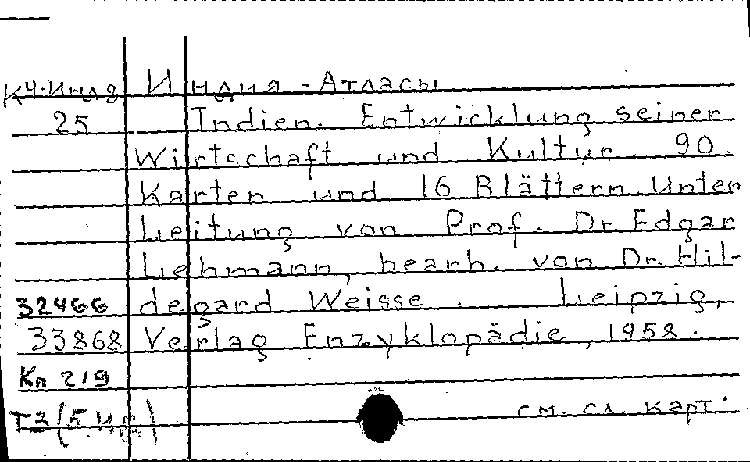 К4.Инд Индия - Атласы
25 Indien. Entwicklung seiner
Wirtschaft und Kultur 90
Karten und 16 Blättern. Unter
Leitung von Prof. Dr. Edgar
Lehmann, bearb. von Dr. Hil-
32466 degard Weisse. Leipzig,
33868 Verlag Enzyklopädie, 1958.
Кп 219
см. сл. карт.